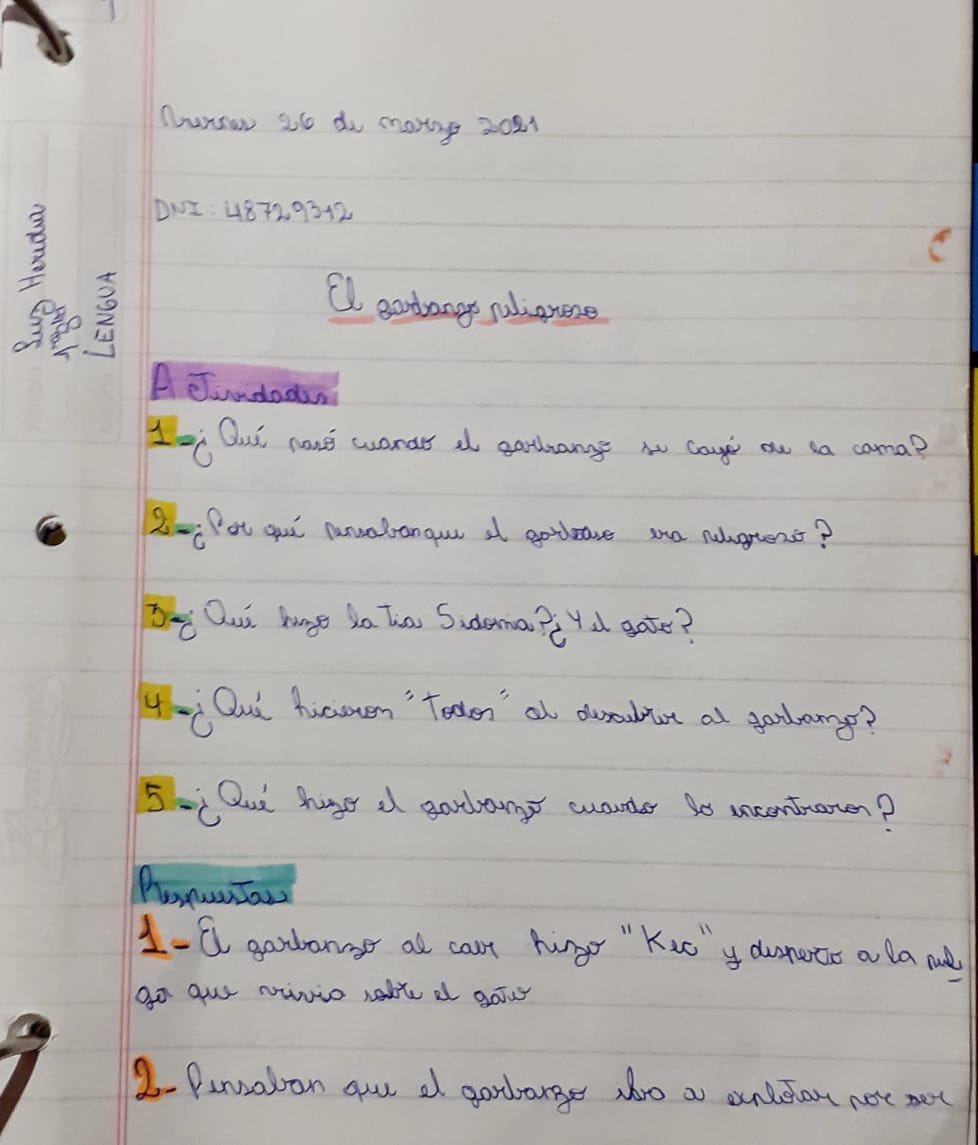 26 de marzo 2021
DNI: 48729312
Luz Heredia
LENGUA
El garbanzo peligroso
Actividades
1-¿Qué pasó cuando el garbanzo se cayó de la cama?
2-¿Por qué pensaban que el garbanzo era peligroso?
3-¿Qué hizo la Tia Sidonia?¿Y el gato?
4-¿Qué hicieron "Todos" al descubrir al garbanzo?
5-¿Qué hizo el garbanzo cuando lo encontraron?
Respuestas
1-El garbanzo al caer hizo "Kec" y desperto a la pul
ga que vivia sobre el gato
2-Pensaban que el garbanzo iba a explotar por ser